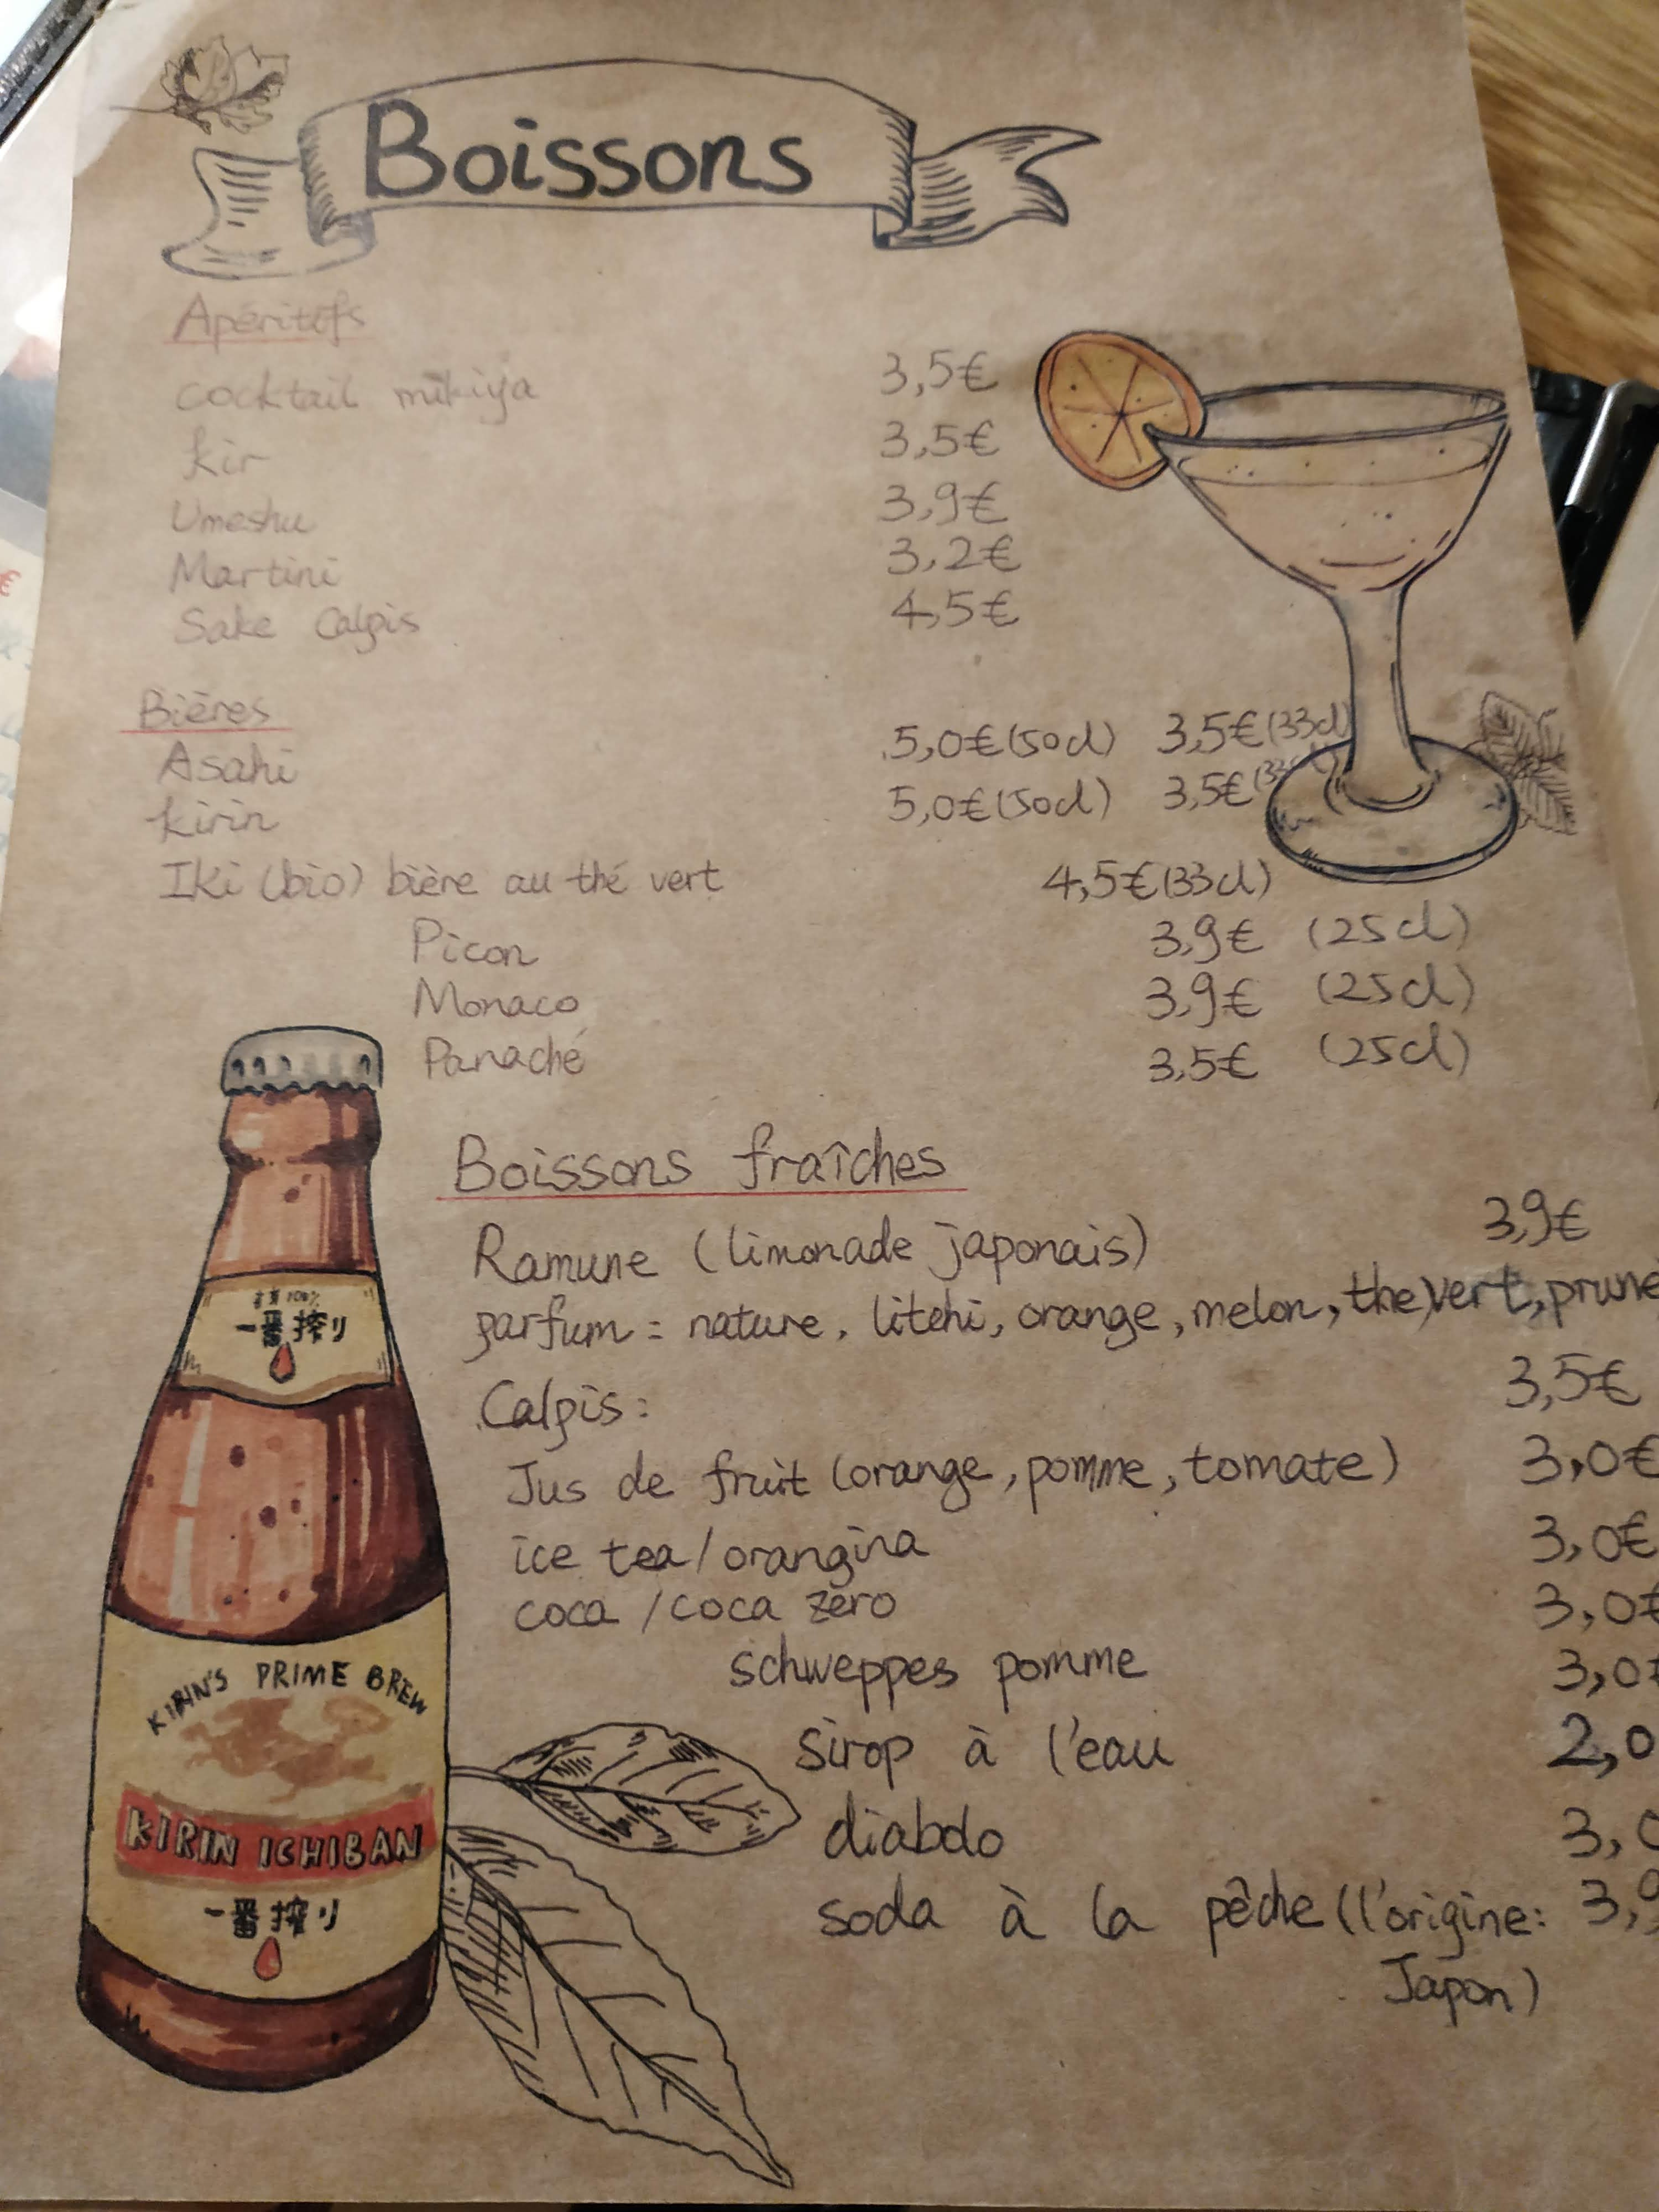 Boissons
Apéritifs
cocktail mikiya 3,5€
kir 3,5€
Umeshu 3,9€
Martini 3,2€
Sake Calpis 4,5€
Bières
Asahi 5,0€(50cl) 3,5€(33cl)
kirin 5,0€(50cl) 3,5€(33cl)
Iki (bio) bière au thé vert 4,5€(33cl)
Picon 3,9€ (25cl)
Monaco 3,9€ (25cl)
Panaché 3,5€ (25cl)
Boissons fraîches
Ramune (limonade japonais) 3,9€
parfum : nature, litchi, orange, melon, the vert, prune
Calpis: 3,5€
Jus de fruit (orange, pomme, tomate) 3,0€
ice tea/orangina 3,0€
coca /coca zéro 3,0€
schweppes pomme 3,0€
sirop à l'eau 2,0
diabolo 3,0
soda à la pêche (l'origine: 3,9
Japon)
一番搾り
KIRIN'S PRIME BREW
KIRIN ICHIBAN
一番搾り